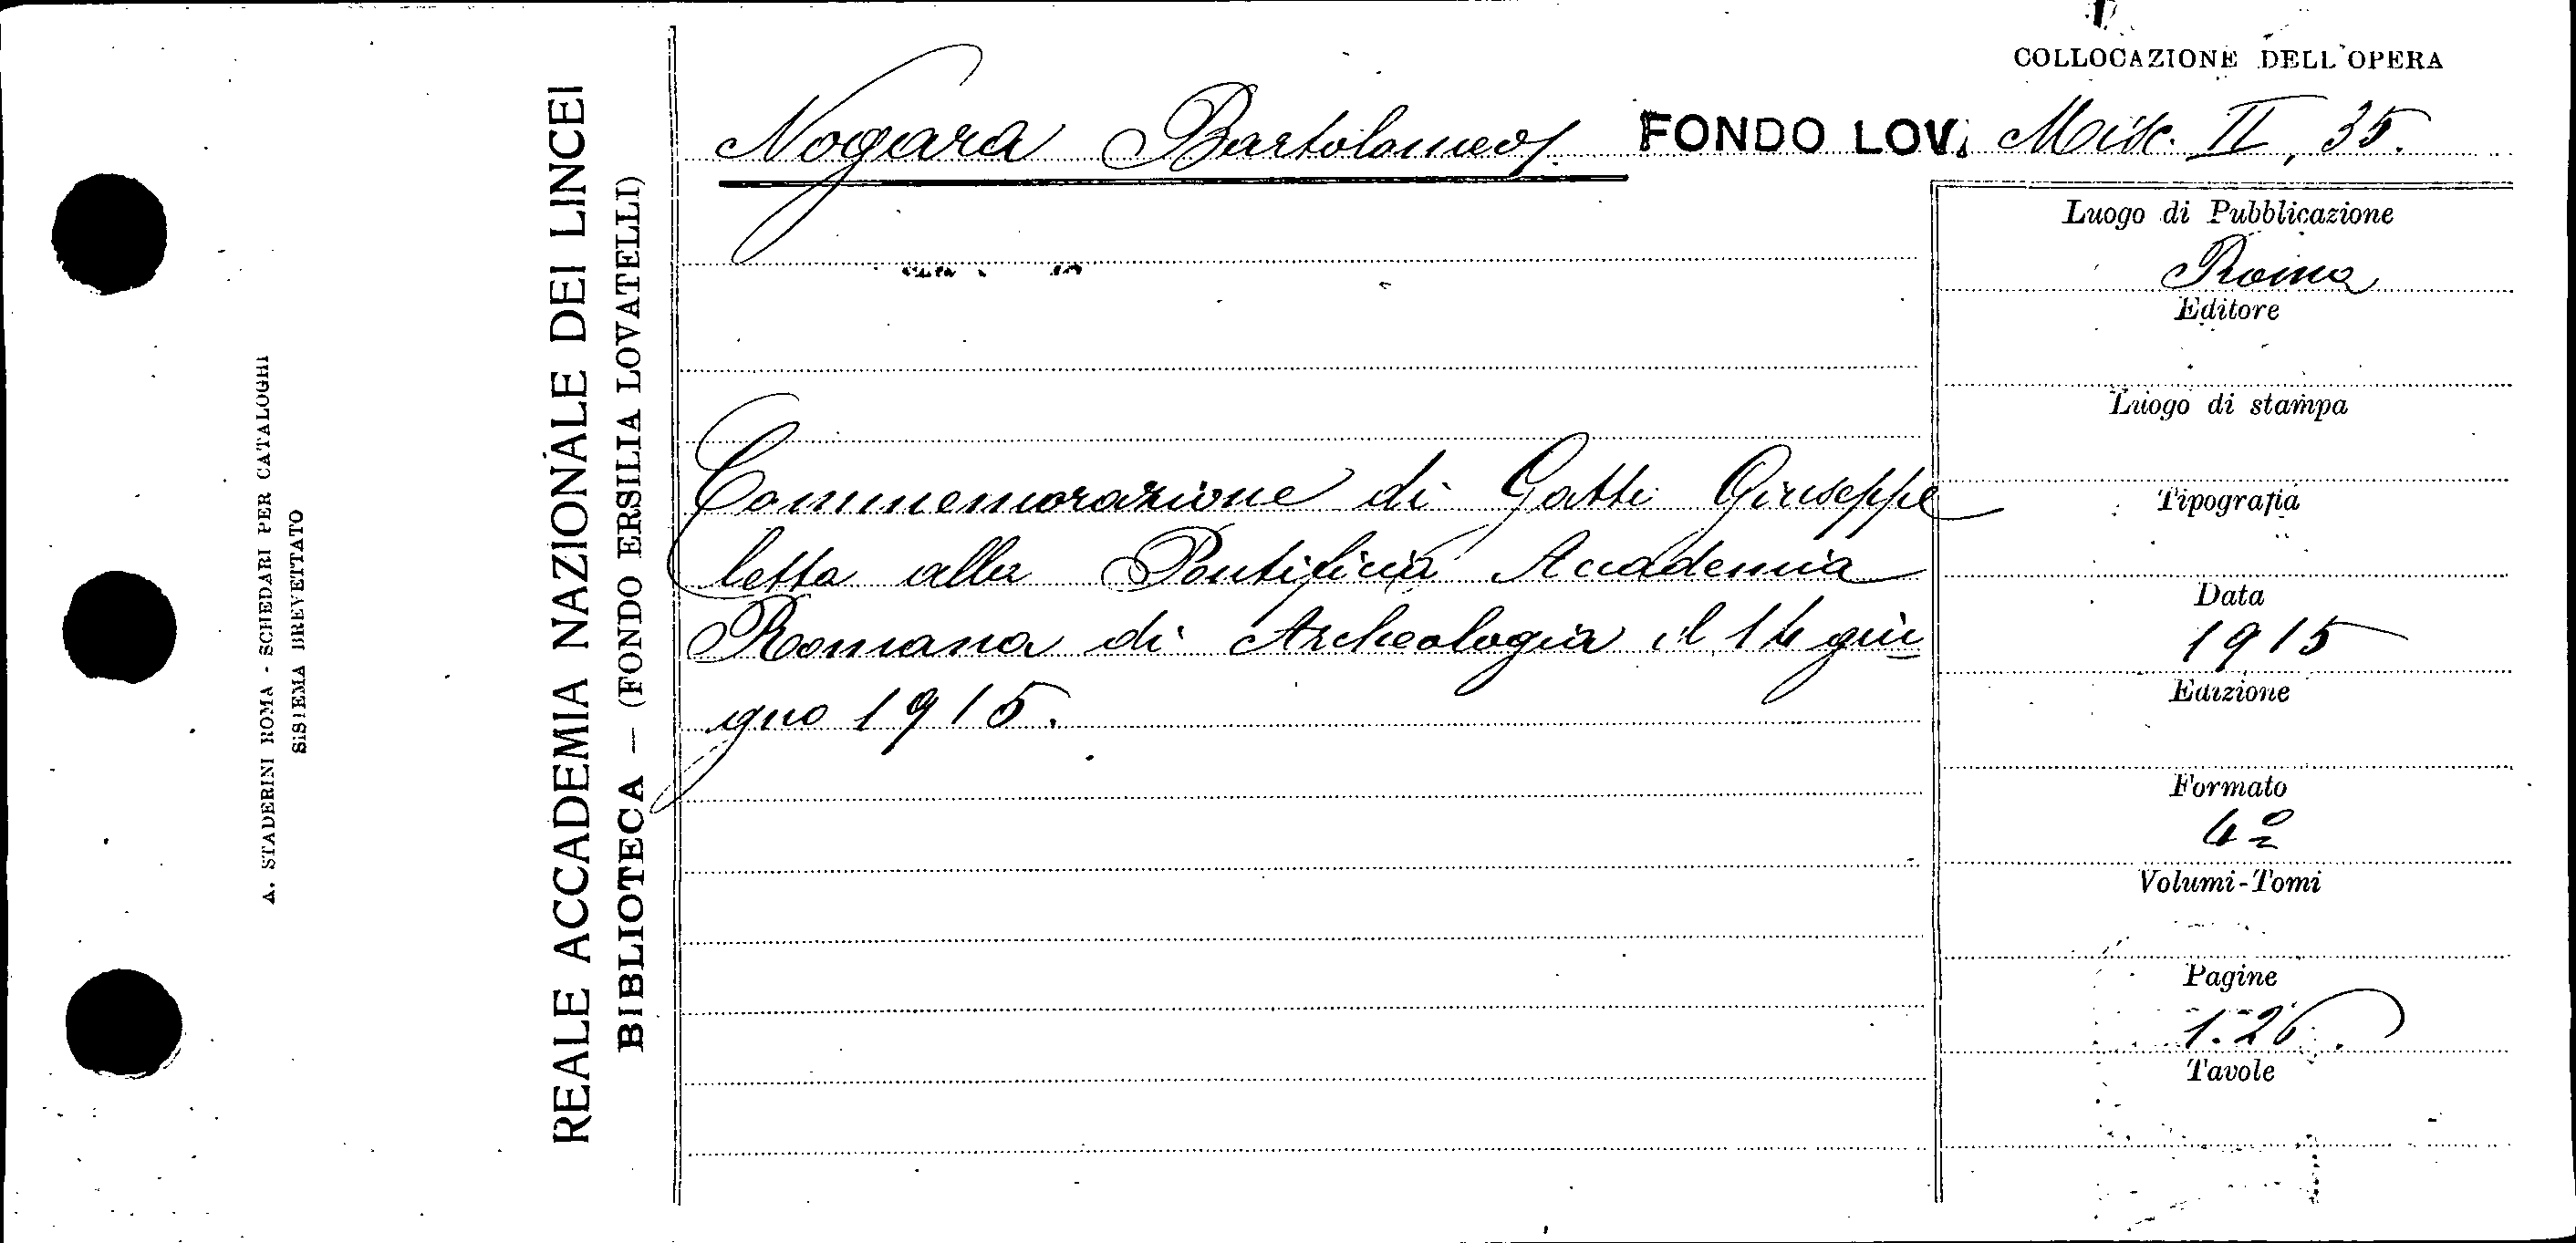 A. STADERINI ROMA - SCHEDARI PER CATALOGHI
SISTEMA BREVETTATO
REALE ACCADEMIA NAZIONALE DEI LINCEI
BIBLIOTECA — (FONDO ERSILIA LOVATELLI)
COLLOCAZIONE DELL'OPERA
Nogara Bartolomeo FONDO LOV. Misc. II, 35.
Commemorazione di Gatti Giuseppe
letta alla Pontificia Accademia
Romana di Archeologia il 14 giu=
gno 1915.
Luogo di Pubblicazione
Roma
Editore
Luogo di stampa
Tipografia
Data
1915
Edizione
Formato
4º
Volumi-Tomi
Pagine
1.26.
Tavole